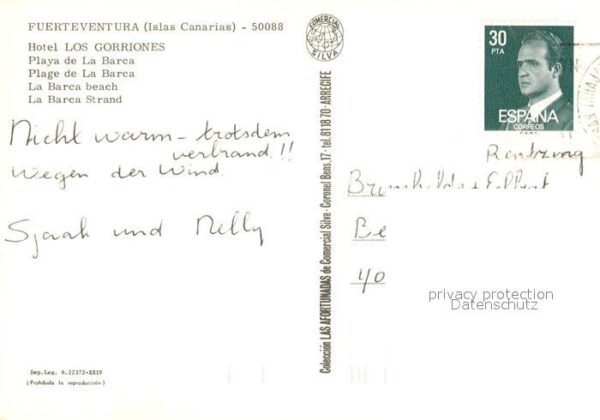 FUERTEVENTURA (Islas Canarias) - 50088
Hotel LOS GORRIONES
Playa de La Barca
Plage de La Barca
La Barca beach
La Barca Strand
Nicht warm - trotsdem
verbrand!!
wegen der Wind.
Sjaak und Nelly
Dep. Leg. B.22372-XXIV
(Prohibida la reproducción)
COMERCIAL SILVA
Colección LAS AFORTUNADAS de Comercial Silva - Coronel Bens, 17 - tel. 81 18 70 - ARRECIFE
30
PTA
ESPAÑA
CORREOS
Be
40
privacy protection
Datenschutz